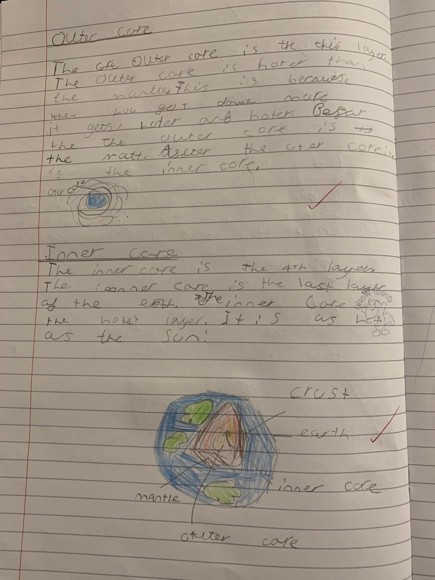 Outer core
The Outer core is the layer
The Outer core is hoter than
the mantle. This is because
when you get down more
it gets hoter and hoter. Befor
the the outer core is
the mantl. After the uter core
is the inner core.
Inner Core
The inner core is the 4th layer.
The ionner core is the last layer
of the earth. The inner core
the hotest layer. It is as hot
as the Sun.
crust
earth
mantle
inner core
outer core